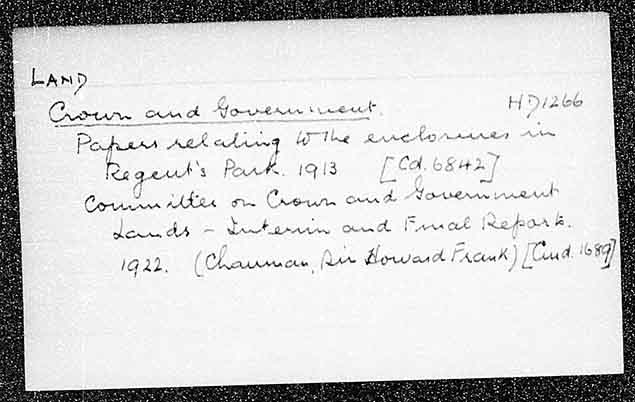 LAND
Crown and Government. HD1266
Papers relating to the enclosures in
Regent's Park. 1913 [Cd. 6842]
Committee on Crown and Government
Lands - Interim and Final Reports.
1922. (Chairman, Sir Howard Frank) [Cmd. 1689]